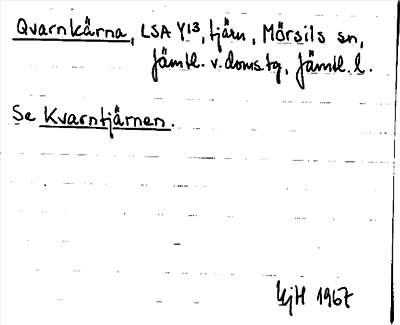 Qvarnkärna, LSA Y13, tjärn, Mörsils sn,
Jämtl. v. doms.tg, Jämtl. l.
Se Kvarntjärnen.
LjH 1967